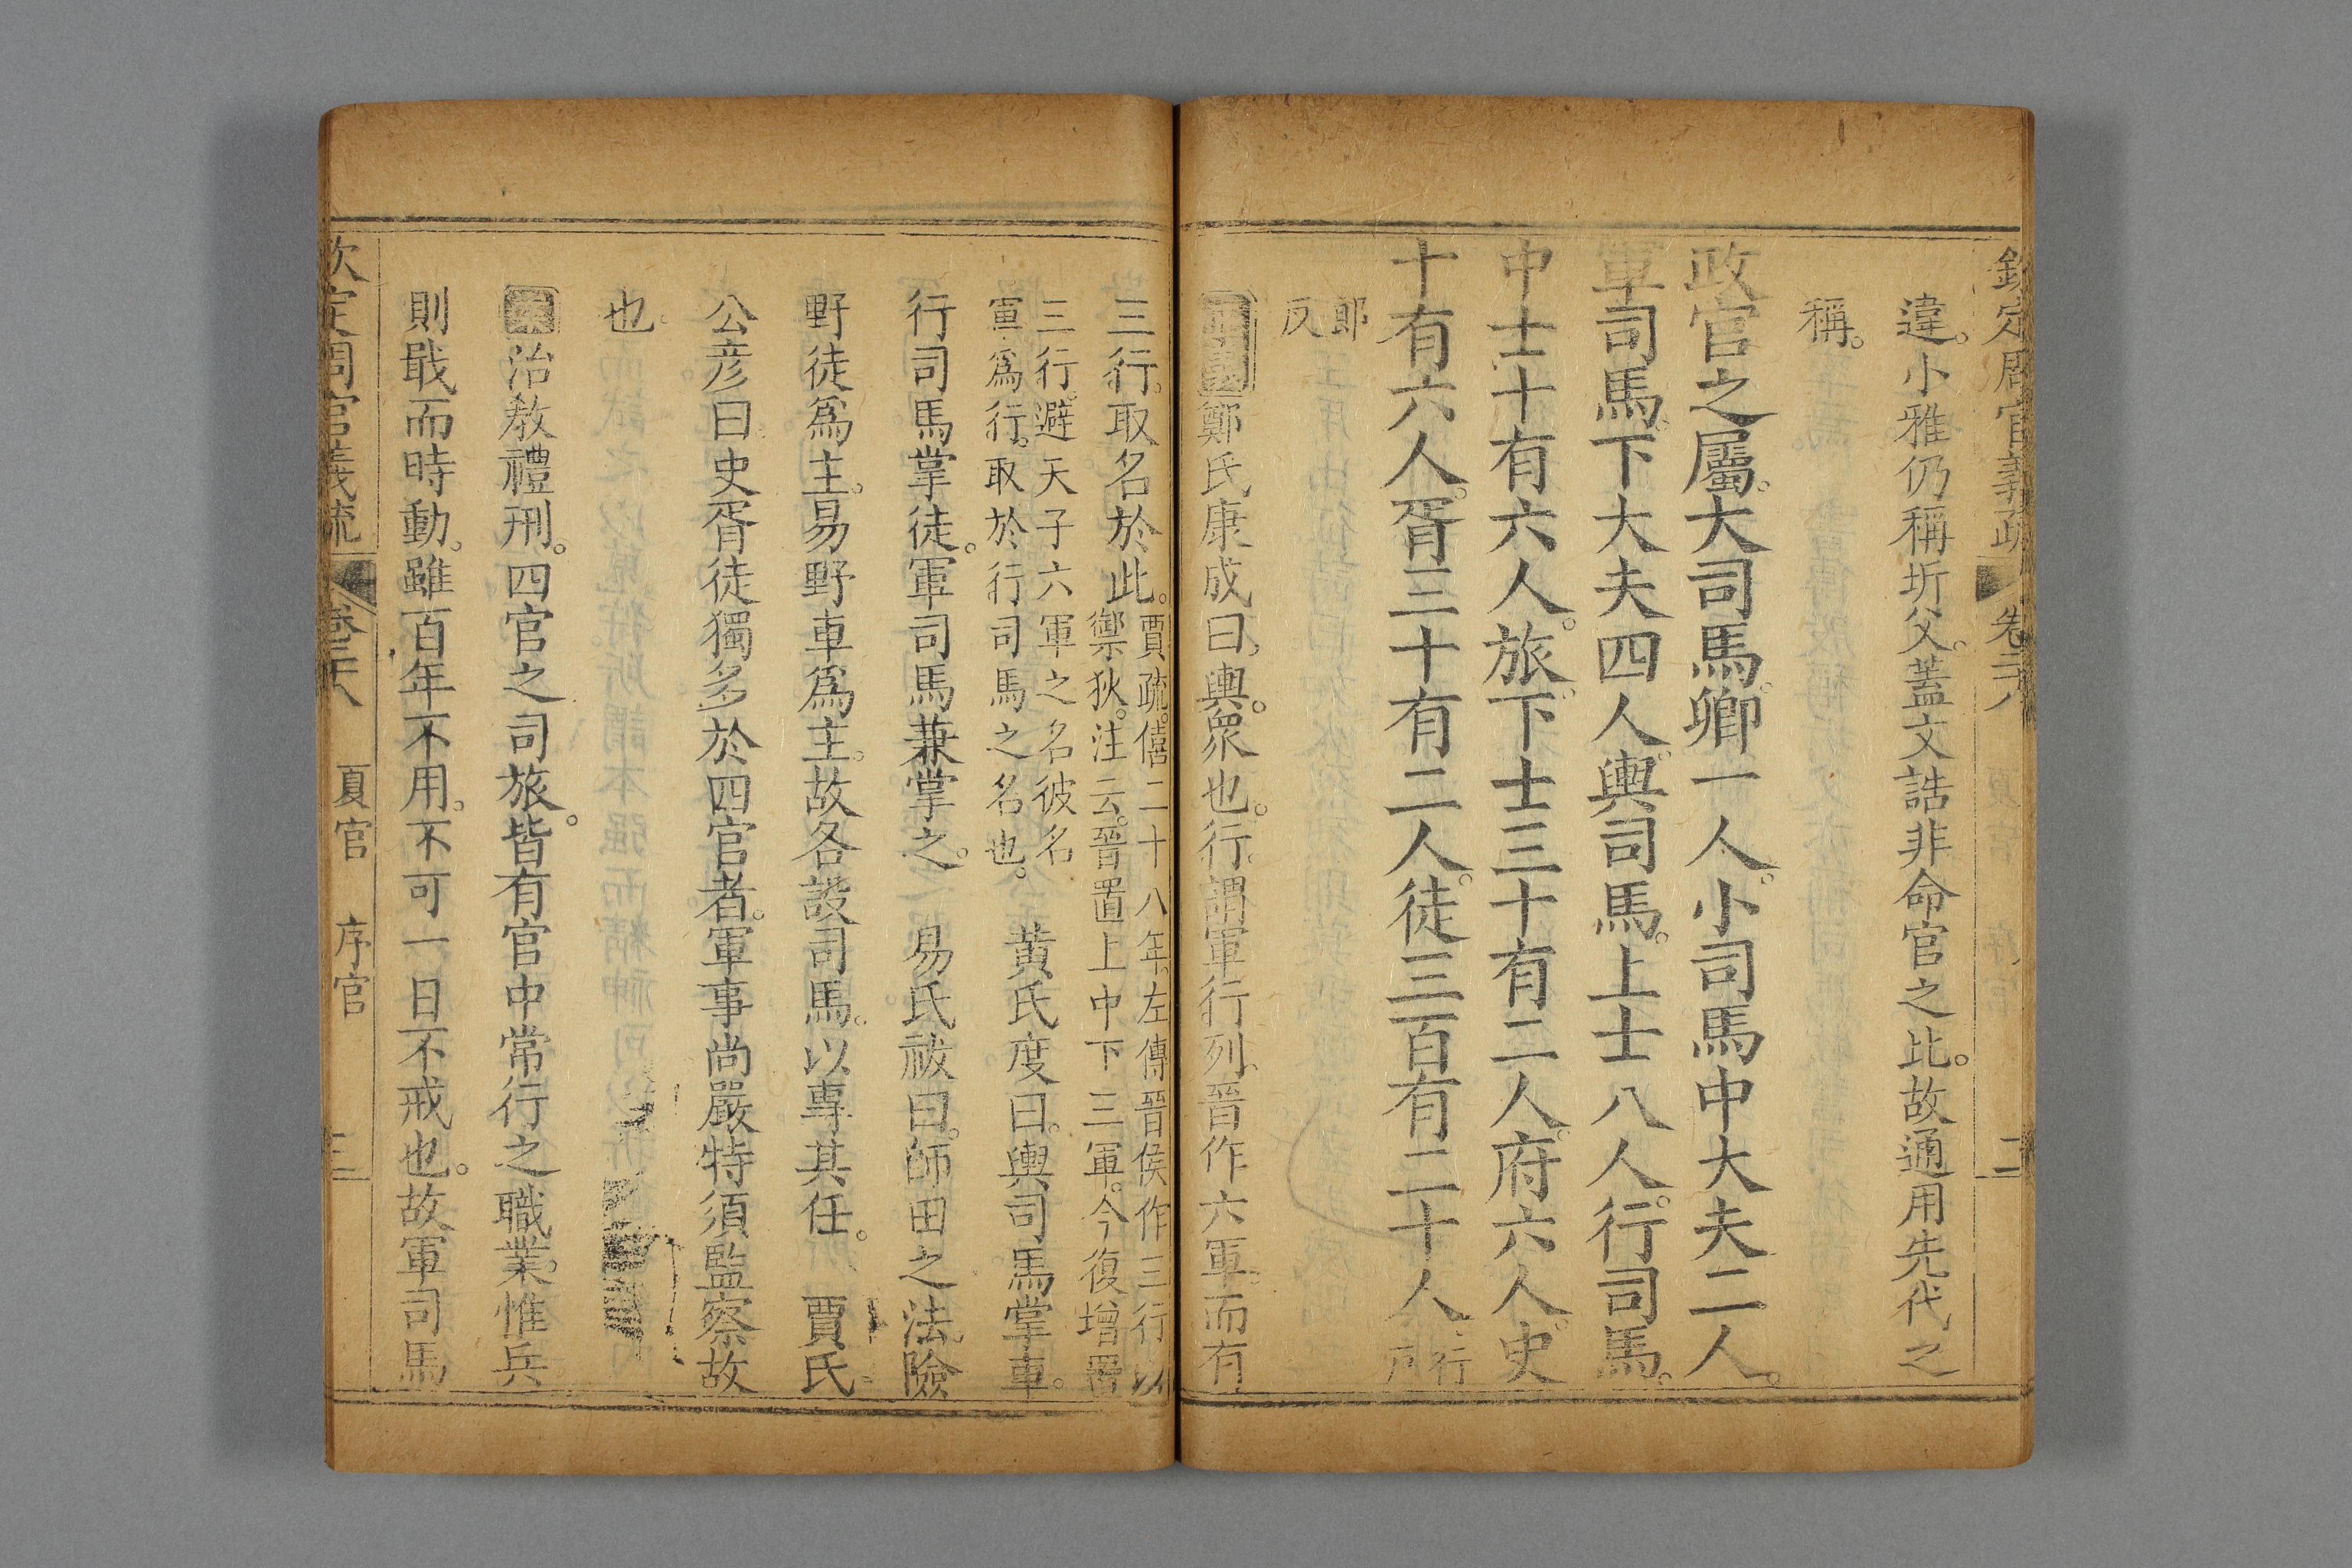 欽定周官義疏 卷二十八 夏官 序官 二
違。小雅仍稱圻父。蓋文誥非命官之比。故通用先代之
稱。
政官之屬。大司馬。卿一人。小司馬中大夫二人。
軍司馬。下大夫四人。輿司馬。上士八人。行司馬。
中士十有六人。旅。下士三十有二人。府六人。史
十有六人。胥三十有二人。徒三百有二十人。行戸
郎反
正義 鄭氏康成曰。輿。衆也。行。謂軍行列。晉作六軍。而有
三行。取名於此。賈疏。僖二十八年。左傳晉侯作三行以
禦狄。注云。晉置上中下三軍。今復增置
三行。避天子六軍之名。彼名
軍爲行。取於行司馬之名也。 黄氏度曰。輿司馬掌車。
行司馬掌徒。軍司馬兼掌之。 易氏祓曰。師田之法。險
野徒爲主。易野車爲主。故各設司馬。以專其任。 賈氏
公彥曰。史胥徒獨多於四官者。軍事尚嚴。特須監察故
也。
案 治敎禮刑。四官之司旅。皆有官中常行之職業。惟兵
則戢而時動。雖百年不用。不可一日不戒也。故軍司馬
欽定周官義疏 卷二十八 夏官 序官 三